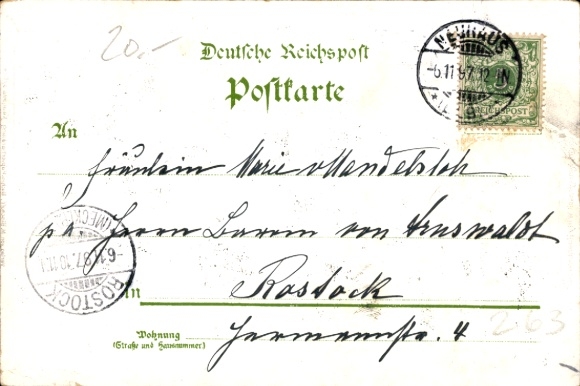 20.-
Deutsche Reichspost
Postkarte
NEUHAUS
-6.11.97.12
REICHSPOST
An
Fräulein Marie v Mandelsloh
p. a. Herrn Baron von Arnswaldt
(MECKL
-6.11.97.10-11
ROSTOCK
in
Rostock
Wohnung
(Straße und Hausnummer)
Hermannstr. 4
263